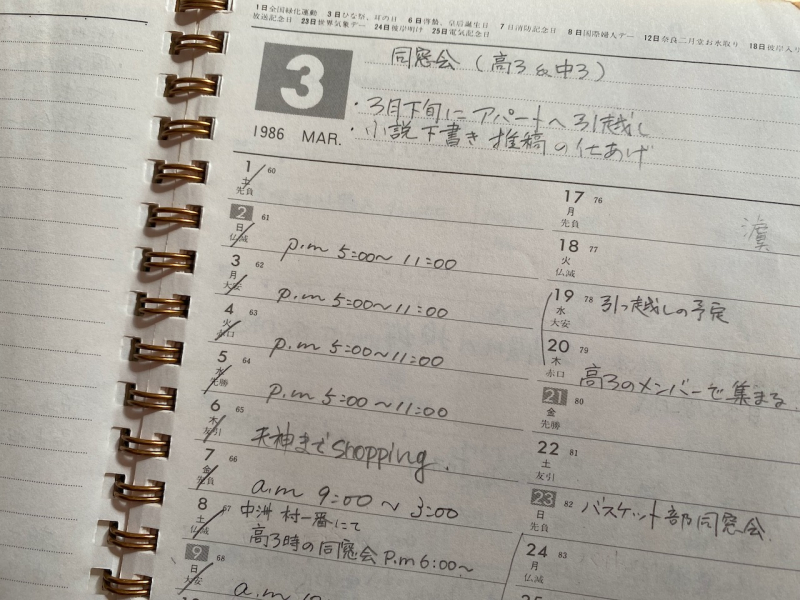 1日全国緑化運動 3日ひな祭、耳の日 6日啓蟄、皇后誕生日 7日消防記念日 8日国際婦人デー 12日奈良二月堂お水取り 18日彼岸入り
放送記念日 23日世界気象デー 24日彼岸明け 25日電気記念日
3
1986 MAR.
同窓会(高3&中3)
・3月下旬にアパートへ引越し
・小説下書き推稿の仕あげ
1 60
土
先負
2 61
日
仏滅
p.m 5:00~11:00
3 62
月
大安
p.m 5:00~11:00
4 63
火
赤口
p.m 5:00~11:00
5 64
水
先勝
p.m 5:00~11:00
6 65
木
友引
天神までshopping.
7 66
金
先負
a.m 9:00~3:00
8 67
土
仏滅
中洲 村一番にて
高3時の同窓会 P.m 6:00~
9 68
日
大安
17 76
月
先負
18 77
火
仏滅
19 78
水
大安
引っ越しの予定
20 79
木
赤口
高3のメンバーで集まる
21 80
金
先勝
22 81
土
友引
23 82
日
先負
バスケット部同窓会
24 83
月
仏滅